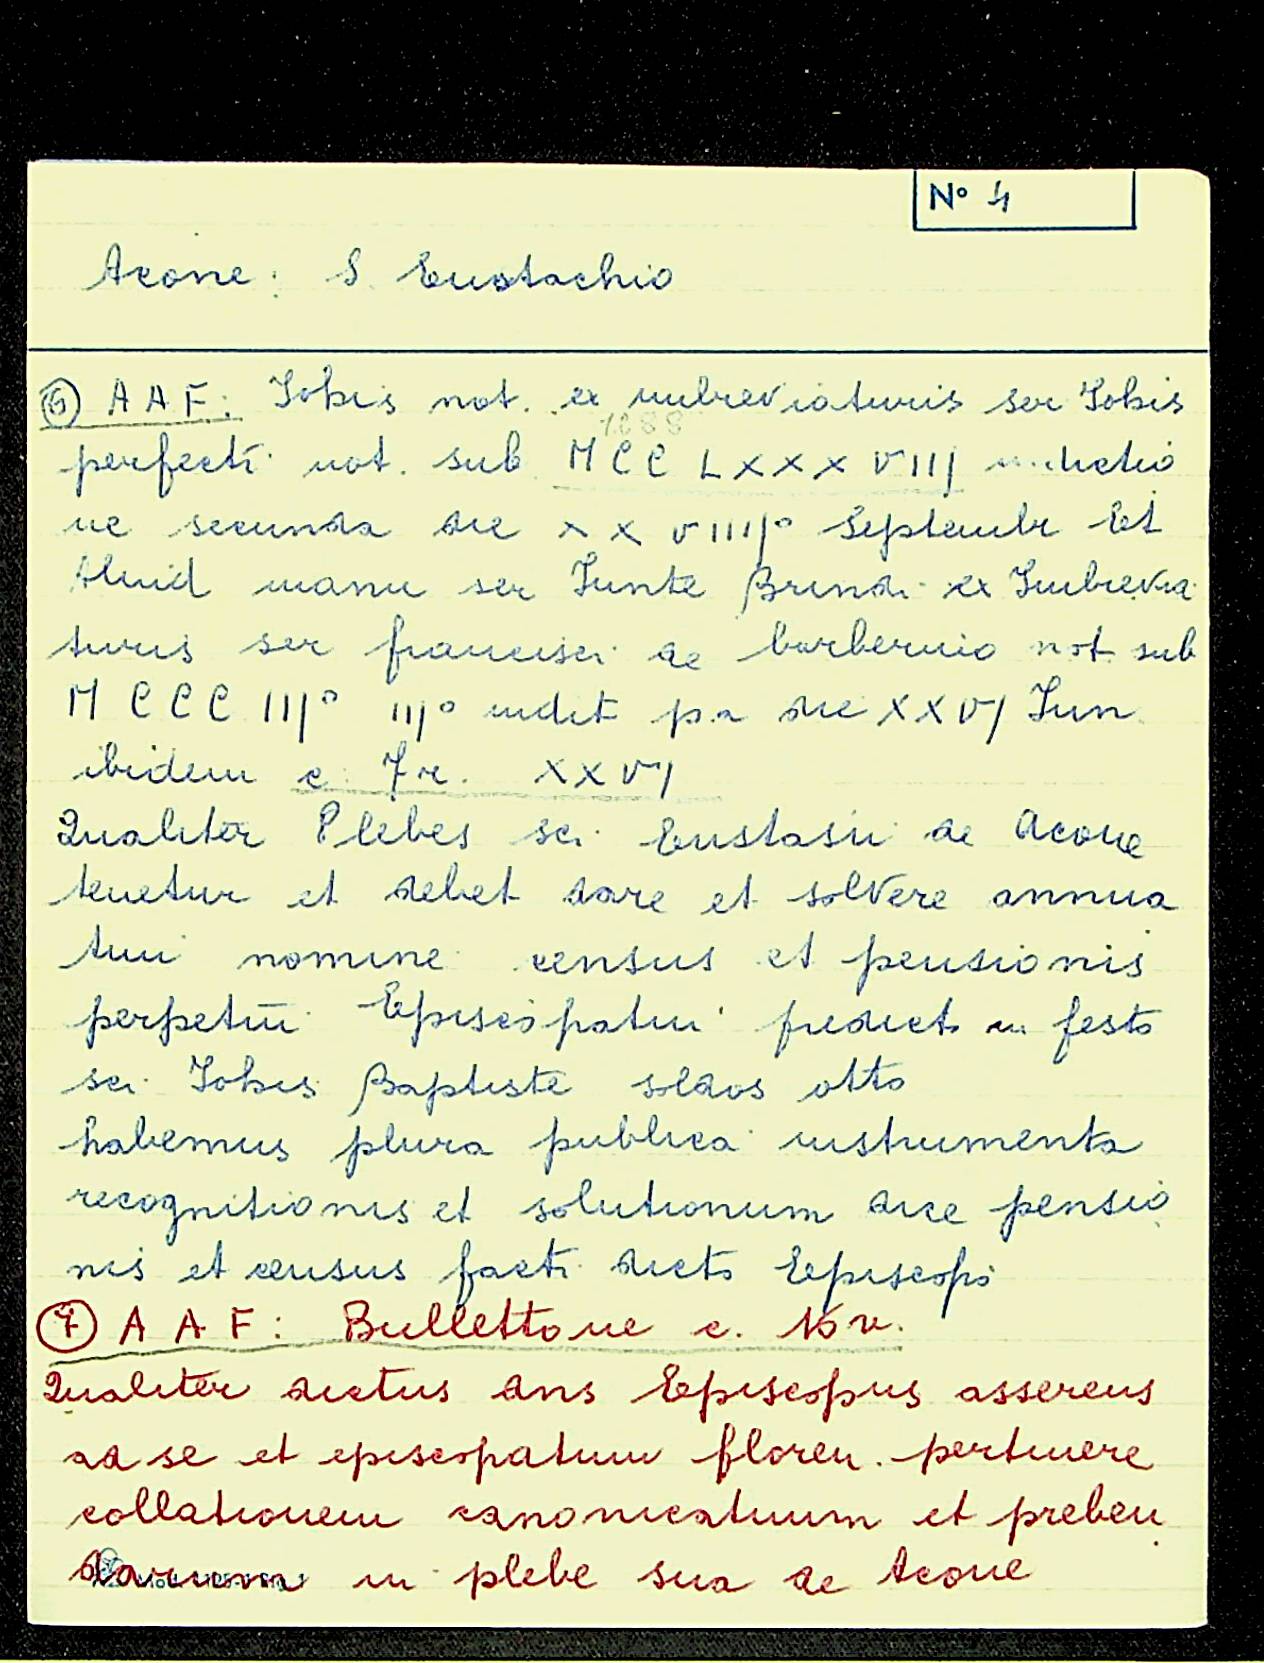 N° 4
Acone: S. Eustachio
⑥ A A F: Iohis not. ex imbreviaturis ser Iohis
1288
perfecti not. sub MCCLXXXVIII indictio
ne secunda die XXVIIII° Septembr Et
Aliud manu ser Iunte Brindi ex Imbrevia
turis ser francisci de barberino not sub
MCCCIII° III° indit pa die XXVI Iun
ibidem c. 7 r. XXVI
Qualiter Plebes sci Eustasii de Acone
tenetur et debet dare et solvere annua
tim nomine census et pensionis
perpetui Episcopatui predicto in festo
sci Iohis Baptiste soldos otto
habemus plura publica instrumenta
recognitionis et solutionum dice pensio
nis et census facti dicto Episcopo
⑦ A A F: Bullettone c. 16 v.
Qualiter dictus dns Episcopus asserens
ad se et episcopatum floren. pertinere
collationem canonicatuum et preben
darum in plebe sua de Acone